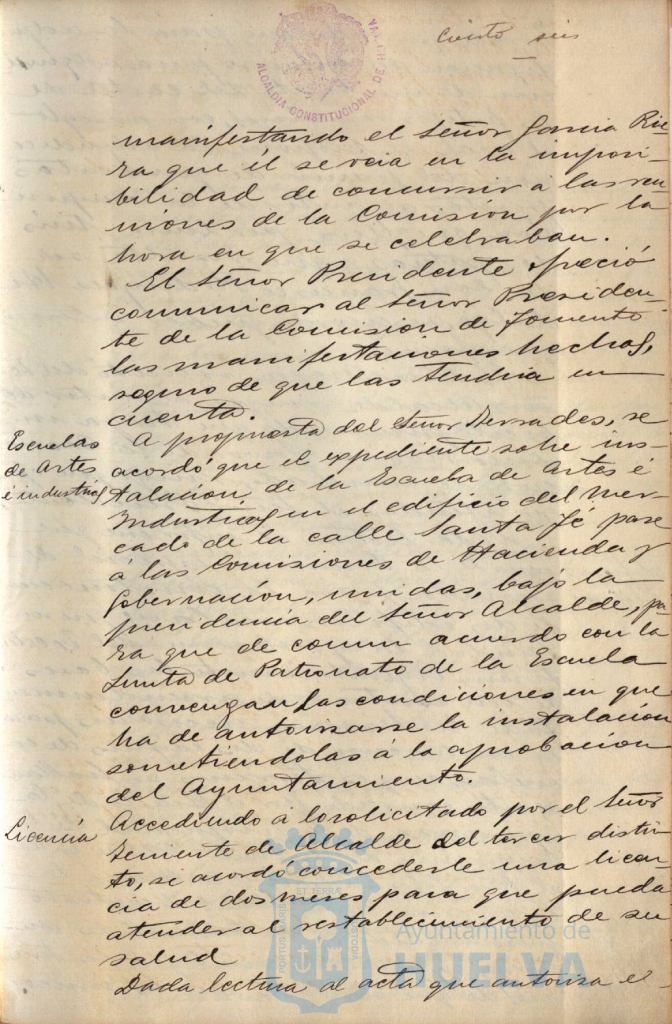 Ciento seis
ALCALDIA CONSTITUCIONAL DE HUELVA
manifestando el Señor Garcia Rie-
ra que él se veia en la imposi-
bilidad de concurrir á las reu-
niones de la Comisión por la
hora en que se celebraban.
El Señor Presidente ofreció
comunicar al Señor Presiden-
te de la Comisión de Fomento
las manifestaciones hechas,
seguro de que las tendria en
cuenta.
Escuelas
de Artes
é industrias
A propuesta del Señor, se
acordó que el expediente sobre ins-
talación de la Escuela de Artes é
Industrias en el edificio del Mer-
cado de la calle Santa Fé pase
á las Comisiones de Hacienda y
Gobernación, unidas, bajo la
presidencia del Señor Alcalde, pa-
ra que de comun acuerdo con la
Junta de Patronato de la Escuela
convengan las condiciones en que
ha de autorizarse la instalación
sometiendolas á la aprobación
del Ayuntamiento.
Licencia
Accediendo á lo solicitado por el Señor
Teniente de Alcalde del tercer distri-
to, se acordó concederle una licen-
cia de dos meses para que pueda
atender al restablecimiento de su
salud
Dada lectura al acta que autoriza el
PORTUS MARIS ET TERRÆ CUSTODIA
Ayuntamiento de
HUELVA